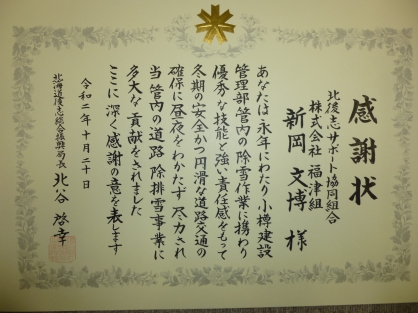 感謝状
北後志サポート協同組合
株式会社 福津組
新岡 文博 様
あなたは永年にわたり小樽建設
管理部管内の除雪作業に携わり
優秀な技能と強い責任感をもって
冬期の安全かつ円滑な道路交通の
確保に昼夜をわかたず尽力され
当管内の道路除排雪事業に
多大な貢献をされました
ここに深く感謝の意を表します
令和二年十月二十日
北海道後志総合振興局長 北谷 啓幸